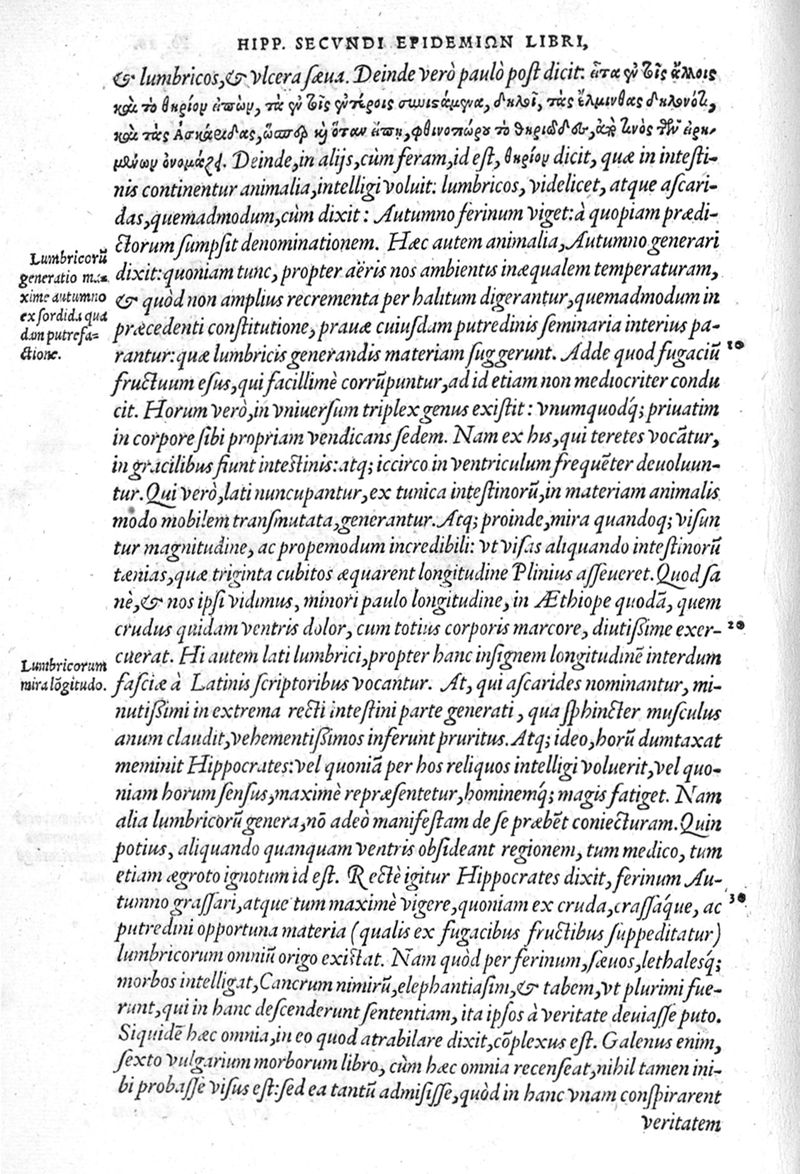 HIPP. SECVNDI EPIDEMIΩN LIBRI,
& lumbricos, & vlcera sæua. Deinde verò paulò post dicit: εἶτα ἐν τοῖς ἄλλοις
καὶ τὸ θηρίον εἰπὼν, τὰ ἐν τοῖς ἐντέροις δηλοῖ, τὰς ἕλμινθας δηλονότι,
καὶ τὰς Ἀσκαρίδας, ὥσπερ καὶ ὅταν εἴπῃ, φθινοπώρου τὸ θηριῶδες, ἀπό τινος τῶν εἰρη-
μένων ὀνομάζει. Deinde, in alijs, cùm feram, id est, θηρίον dicit, quæ in intesti-
nis continentur animalia, intelligi voluit: lumbricos, videlicet, atque ascari-
das, quemadmodum, cùm dixit: Autumno ferinum viget: à quopiam prædi-
ctorum sumpsit denominationem. Hæc autem animalia, Autumno generari
Lumbricorũ
generatio ma-
xime autumno
ex sordida qua
dam putrefa-
ctione.
dixit: quoniam tunc, propter aëris nos ambientis inæqualem temperaturam,
& quòd non amplius recrementa per halitum digerantur, quemadmodum in
præcedenti constitutione, prauæ cuiusdam putredinis seminaria interius pa-
rantur: quæ lumbricis generandis materiam suggerunt. Adde quod fugaciũ
10
fructuum esus, qui facillimè corrũpuntur, ad id etiam non mediocriter condu
cit. Horum verò, in vniuersum triplex genus existit: vnumquodq; priuatim
in corpore sibi propriam vendicans sedem. Nam ex his, qui teretes vocãtur,
in gracilibus fiunt intestinis: atq; iccirco in ventriculum frequẽter deuoluun-
tur. Qui verò, lati nuncupantur, ex tunica intestinorũ, in materiam animalis
modo mobilem transmutata, generantur. Atq; proinde, mira quandoq; visun
tur magnitudine, ac propemodum incredibili: vt visas aliquando intestinorũ
tænias, quæ triginta cubitos æquarent longitudine Plinius asseueret. Quod sa
nè, & nos ipsi vidimus, minori paulo longitudine, in Æthiope quodã, quem
crudus quidam ventris dolor, cum totius corporis marcore, diutißime exer-
20
cuerat. Hi autem lati lumbrici, propter hanc insignem longitudinẽ interdum
Lumbricorum
mira lõgitudo.
fasciæ à Latinis scriptoribus vocantur. At, qui ascarides nominantur, mi-
nutißimi in extrema recti intestini parte generati, qua sphincter musculus
anum claudit, vehementißimos inferunt pruritus. Atq; ideo, horũ dumtaxat
meminit Hippocrates: vel quoniã per hos reliquos intelligi voluerit, vel quo-
niam horum sensus, maximè repræsentetur, hominemq́; magis fatiget. Nam
alia lumbricorũ genera, nõ adeò manifestam de se præbẽt coniecturam. Quin
potius, aliquando quanquam ventris obsideant regionem, tum medico, tum
etiam ægroto ignotum id est. Rectè igitur Hippocrates dixit, ferinum Au-
tumno grassari, atque tum maximè vigere, quoniam ex cruda, crassáque, ac
30
putredini opportuna materia (qualis ex fugacibus fructibus suppeditatur)
lumbricorum omniũ origo existat. Nam quòd per ferinum, sæuos, lethalesq́;
morbos intelligat, Cancrum nimirũ, elephantiasim, & tabem, vt plurimi fue-
runt, qui in hanc descenderunt sententiam, ita ipsos à veritate deuiasse puto.
Siquidẽ hæc omnia, in eo quod atrabilare dixit, cõplexus est. Galenus enim,
sexto vulgarium morborum libro, cùm hæc omnia recenseat, nihil tamen ini-
bi probasse visus est: sed ea tantũ admisisse, quòd in hanc vnam conspirarent
veritatem